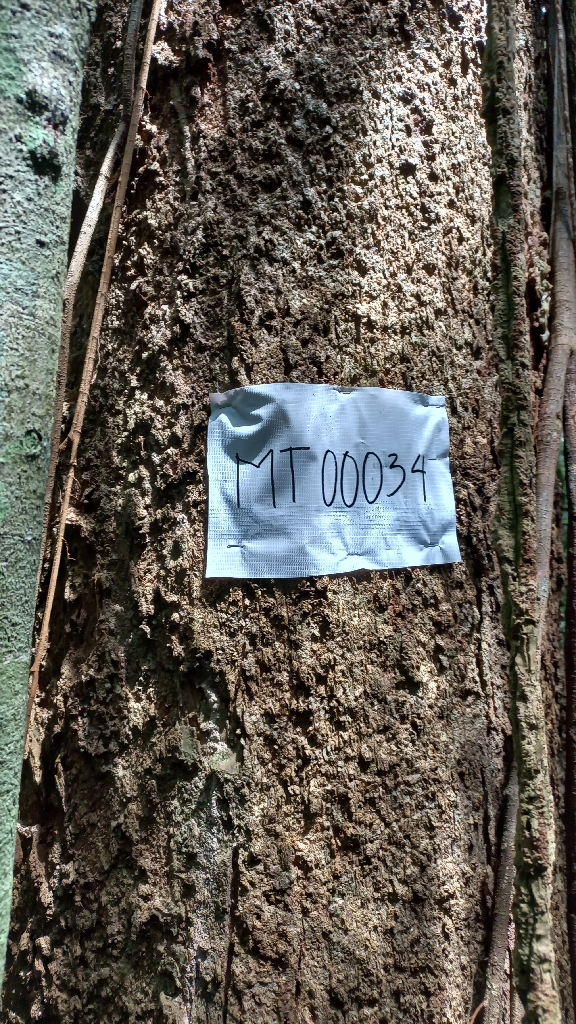 MT 00034